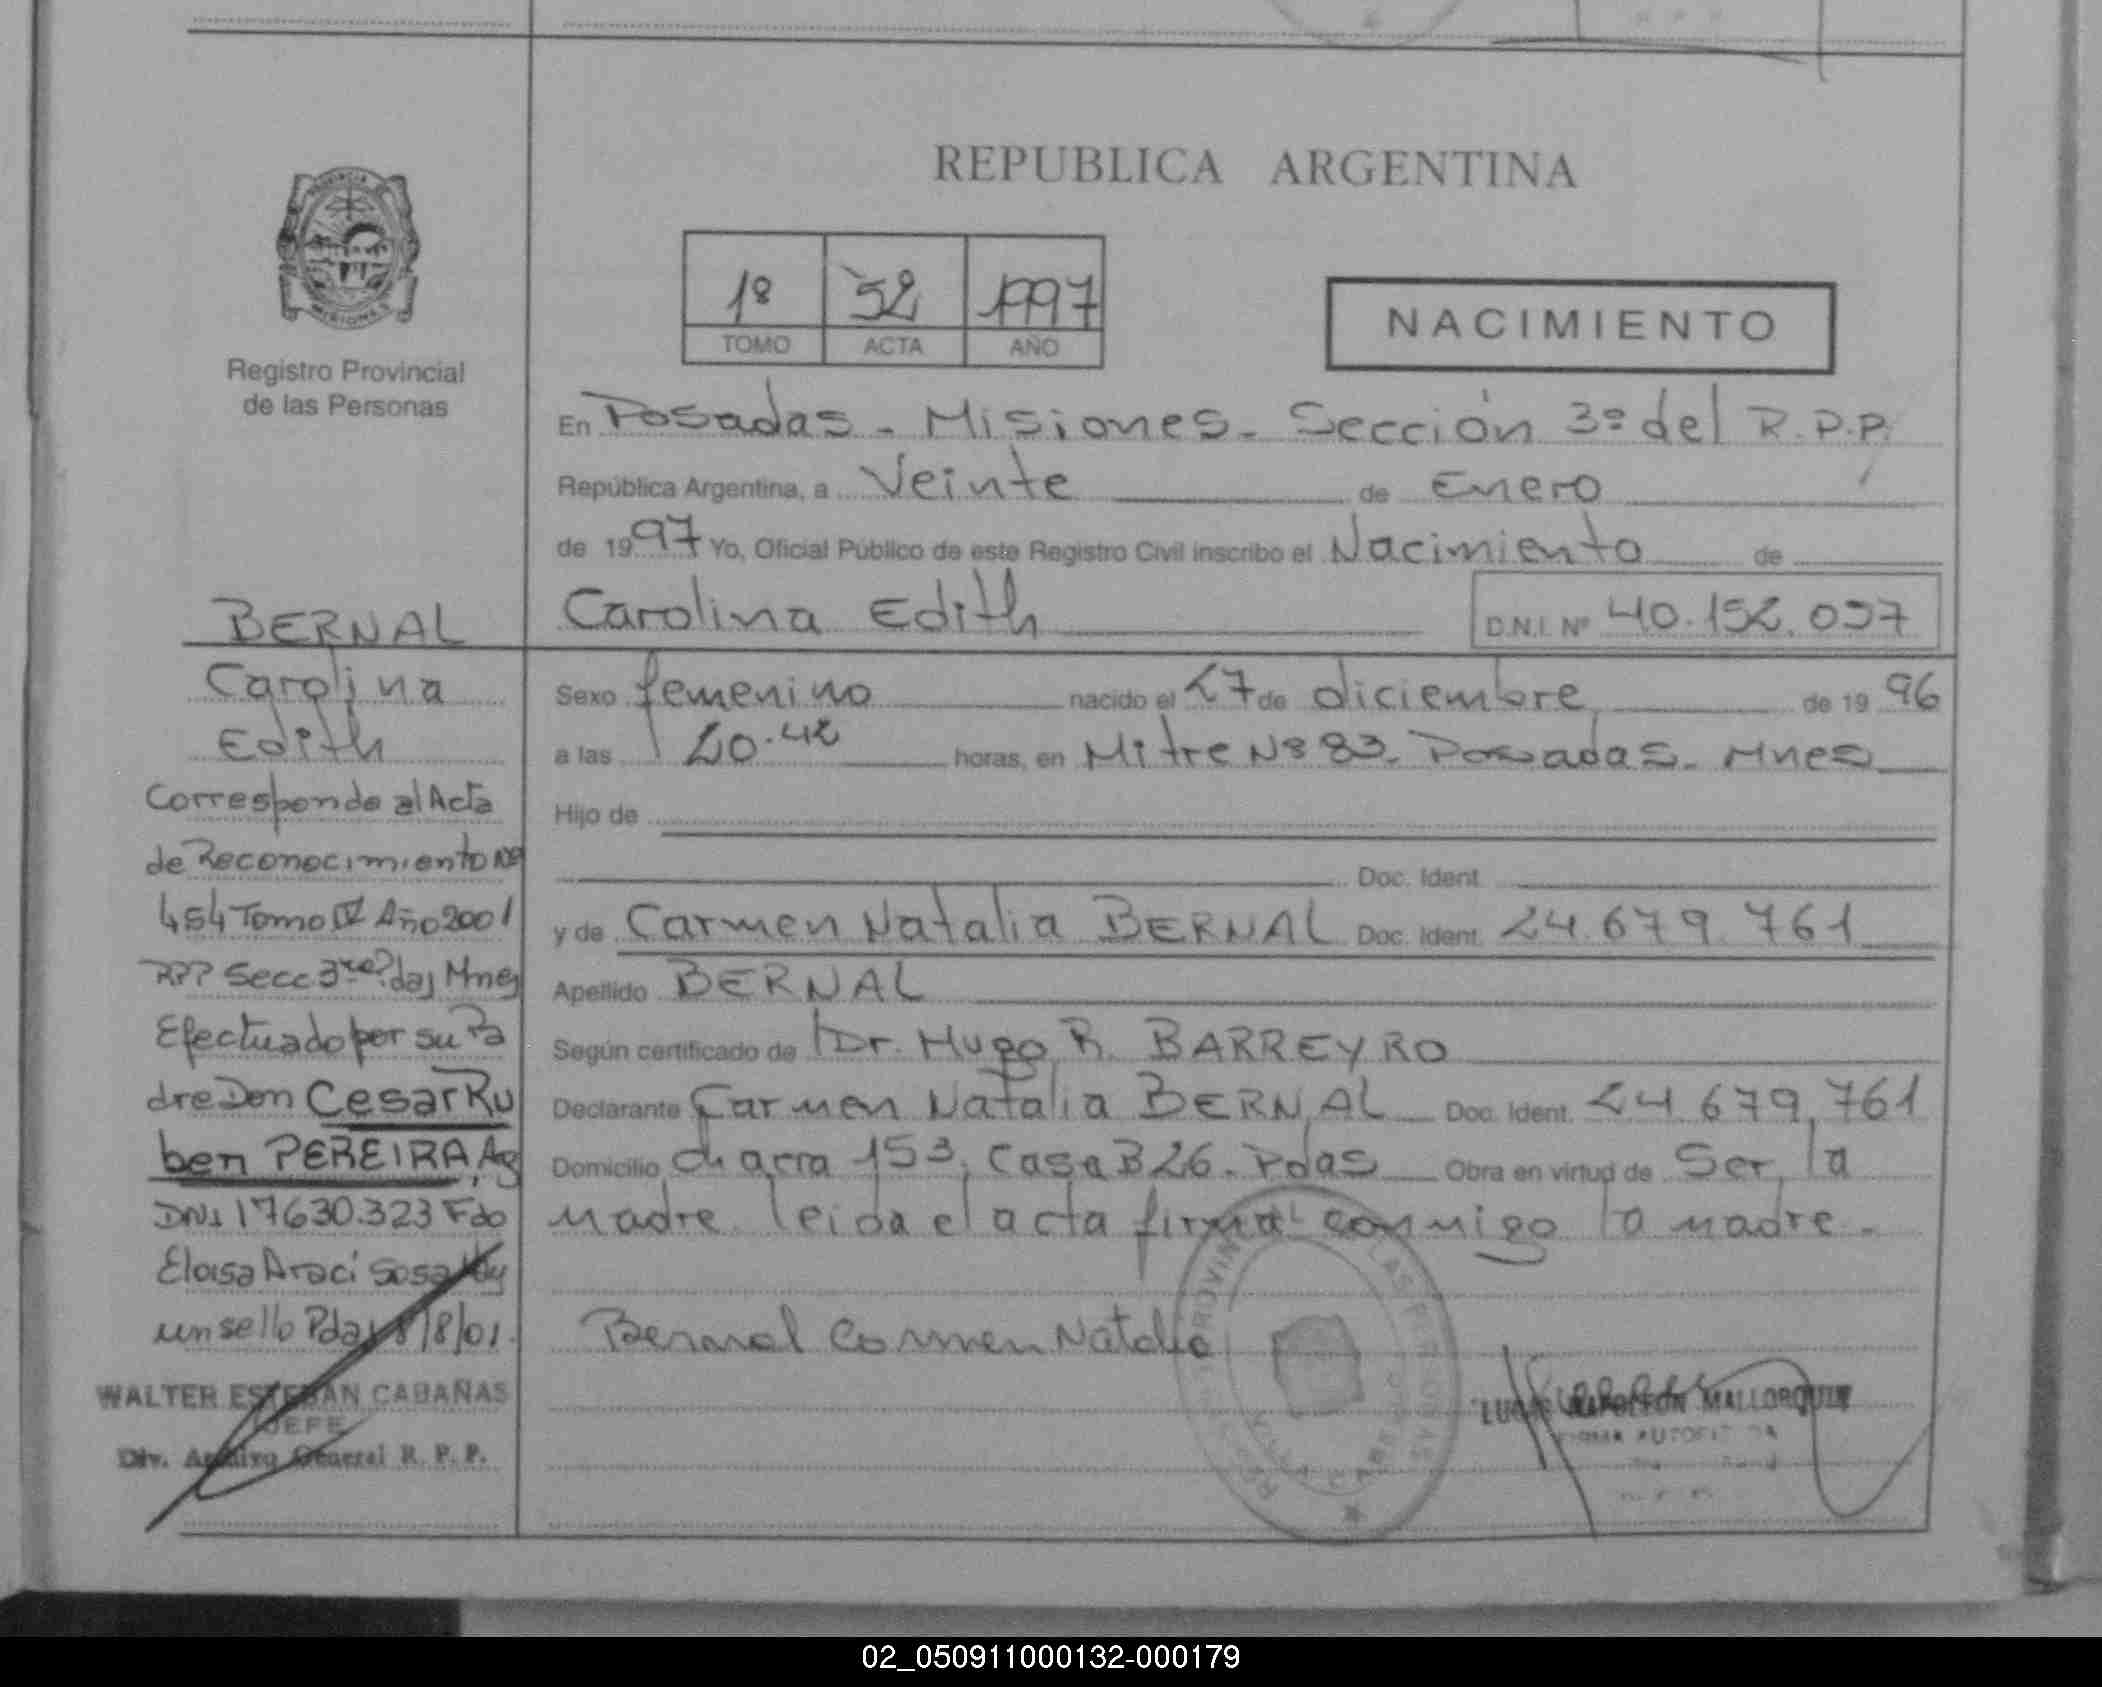 REPUBLICA ARGENTINA
PROVINCIA DE
MISIONES
Registro Provincial
de las Personas
1º 52 1997
TOMO ACTA AÑO
NACIMIENTO
En Posadas - Misiones - Sección 3º del R.P.P.
República Argentina, a Veinte de Enero
de 1997 Yo, Oficial Público de este Registro Civil inscribo el Nacimiento de
Carolina Edith D.N.I. Nº 40.152.097
Sexo femenino nacido el 27 de diciembre de 1996
a las 20.42 horas, en Mitre Nº 83. Posadas. Mnes
Hijo de
Doc. Ident.
y de Carmen Natalia BERNAL Doc. Ident. 24.679.761
Apellido BERNAL
Según certificado de Dr. Hugo R. BARREYRO
Declarante Carmen Natalia BERNAL Doc. Ident. 24.679.761
Domicilio Chacra 153, Casa B26. Pdas Obra en virtud de Ser la
madre leida el acta firma conmigo la madre.
Bernal Carmen Natalia
NAPOLEON MALLORQUIN
BERNAL
Carolina
Edith
Corresponde al Acta
de Reconocimiento Nº
454 Tomo IV Año 2001
RPP Secc 3ra Pdas Mnes
Efectuado por su Pa
dre Don Cesar Ru
ben PEREIRA, Ag
DNI 17630.323 Fdo
Eloisa Araci Sosa Hay
un sello Pdas 8/8/01.
WALTER ESTEBAN CABAÑAS
JEFE
Div. Archivo General R. P. P.
02_050911000132-000179